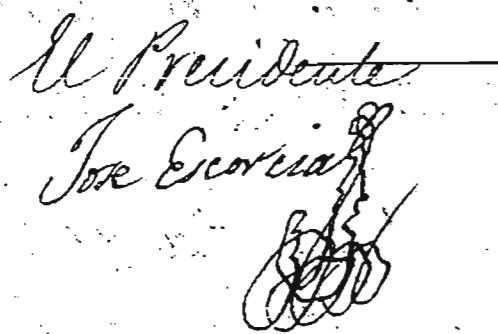 El Presidente
Jose Escorcia